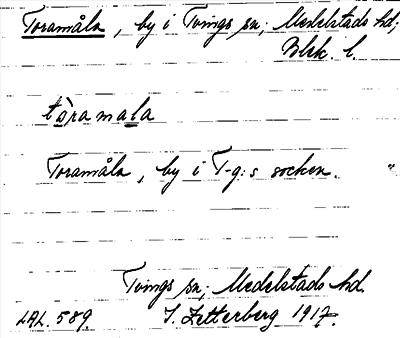 Toramåla, by i Tvings sn; Medelstads hd;
Blek. l.
tòramala
Toramåla, by i T-g:s socken. "
Tvings sn; Medelstads hd.
LAL. 589. J. Zetterberg 1917.